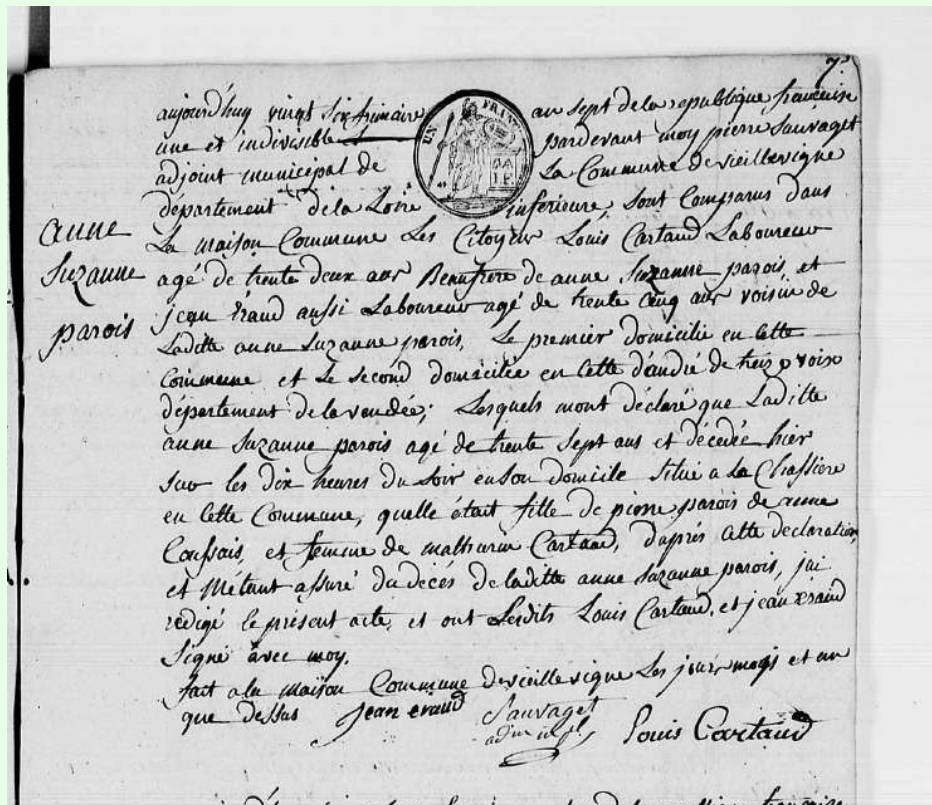 7.
aujourd'huy vingt six frimaire an sept de la republique francaise
une et indivisible pardevant moy pierre Sauvaget
adjoint municipal de La Commune de vieillevigne
département de la Loire inferieure, sont Comparus dans
La maison Commune Les Citoyens Louis Cartaud Laboureur
agé de trente deux ans Beaufrere de anne Suzanne parois, et
jean Eraud aussi Laboureur agé de trente Cinq ans voisin de
Laditte anne Suzanne parois, Le premier domicilié en Cette
Commune, et Le second domicilié en Cette d'andré de treize voix
département de la vendée; Lesquels mont déclaré que Laditte
anne Suzanne parois agé de trente sept ans et décedée hier
sur les dix heures du soir en son domicile situé a la Chassiere
en Cette Commune, quelle était fille de pierre parois de anne
Coussais, et femme de mathurin Cartaud, d'après Cette declaration,
et M'étant assuré du decès de laditte anne Suzanne parois, jai
redigé le présent acte, et ont Lesdits Louis Cartaud, et jean Eraud
Signé avec moy,
fait a la maison Commune de vieillevigne Les jour mois et an
que dessus
jean eraud Sauvaget Louis Cartaud
adm mpl
anne
Suzanne
parois
UN FRANC